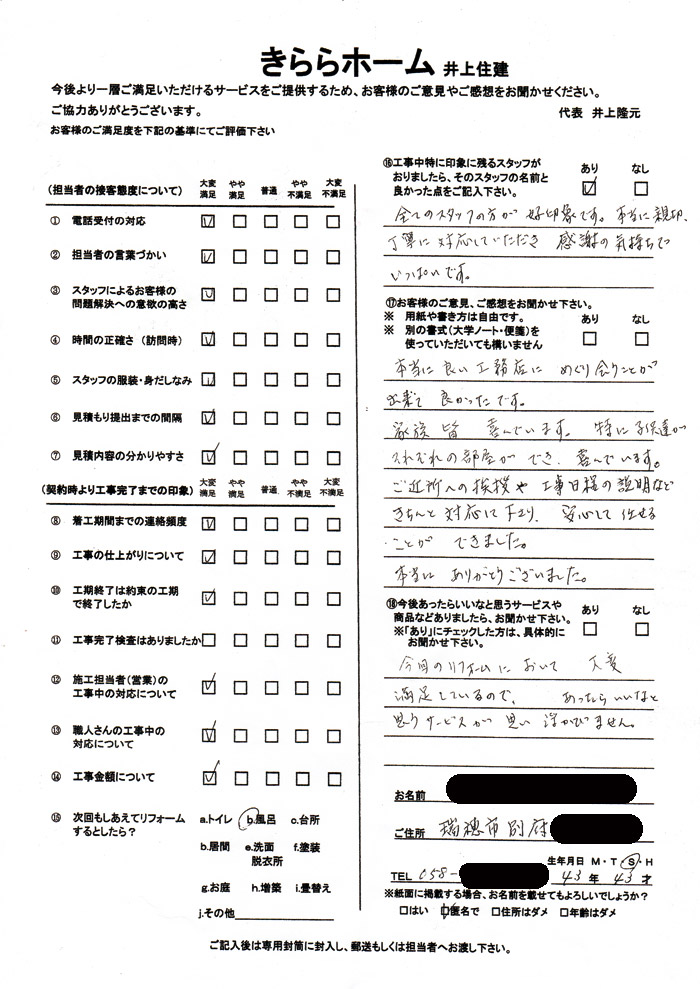 きららホーム 井上住建
今後より一層ご満足いただけるサービスをご提供するため、お客様のご意見やご感想をお聞かせください。
ご協力ありがとうございます。
代表 井上隆元
お客様のご満足度を下記の基準にてご評価下さい
（担当者の接客態度について） 大変満足 やや満足 普通 やや不満足 大変不満足
① 電話受付の対応
② 担当者の言葉づかい
③ スタッフによるお客様の
問題解決への意欲の高さ
④ 時間の正確さ（訪問時）
⑤ スタッフの服装・身だしなみ
⑥ 見積もり提出までの間隔
⑦ 見積内容の分かりやすさ
（契約時より工事完了までの印象） 大変満足 やや満足 普通 やや不満足 大変不満足
⑧ 着工期間までの連絡頻度
⑨ 工事の仕上がりについて
⑩ 工期終了は約束の工期
で終了したか
⑪ 工事完了検査はありましたか
⑫ 施工担当者（営業）の
工事中の対応について
⑬ 職人さんの工事中の
対応について
⑭ 工事金額について
⑮ 次回もしあえてリフォーム
するとしたら？
a.トイレ b.風呂 c.台所
b.居間 e.洗面脱衣所 f.塗装
g.お庭 h.増築 i.畳替え
j.その他
⑯工事中特に印象に残るスタッフが
おりましたら、そのスタッフの名前と
良かった点をご記入下さい。
あり なし
全てのスタッフの方が 好印象です。本当に親切、
丁寧に対応していただき 感謝の気持ちで
いっぱいです。
⑰お客様のご意見、ご感想をお聞かせ下さい。
※ 用紙や書き方は自由です。
※ 別の書式（大学ノート・便箋）を
使っていただいても構いません
あり なし
本当に良い工務店に めぐり会うことが
出来て 良かったです。
家族皆 喜んでいます。 特に子供達が
それぞれの部屋ができ、喜んでいます。
ご近所への挨拶や 工事日程の説明など
きちんと対応して下さり、 安心して任せる
ことが できました。
本当に ありがとうございました。
⑱今後あったらいいなと思うサービスや
商品などありましたら、お聞かせ下さい。
※「あり」にチェックした方は、具体的に
お聞かせ下さい。
あり なし
今回のリフォームにおいて 大変
満足しているので、 あったらいいなと
思うサービスが 思い浮かびません。
お名前
ご住所 瑞穂市別府
生年月日 M・T・S・H
TEL 058- 43年 43才
※紙面に掲載する場合、お名前を載せてもよろしいでしょうか？
□はい □匿名で □住所はダメ □年齢はダメ
ご記入後は専用封筒に封入し、郵送もしくは担当者へお渡し下さい。